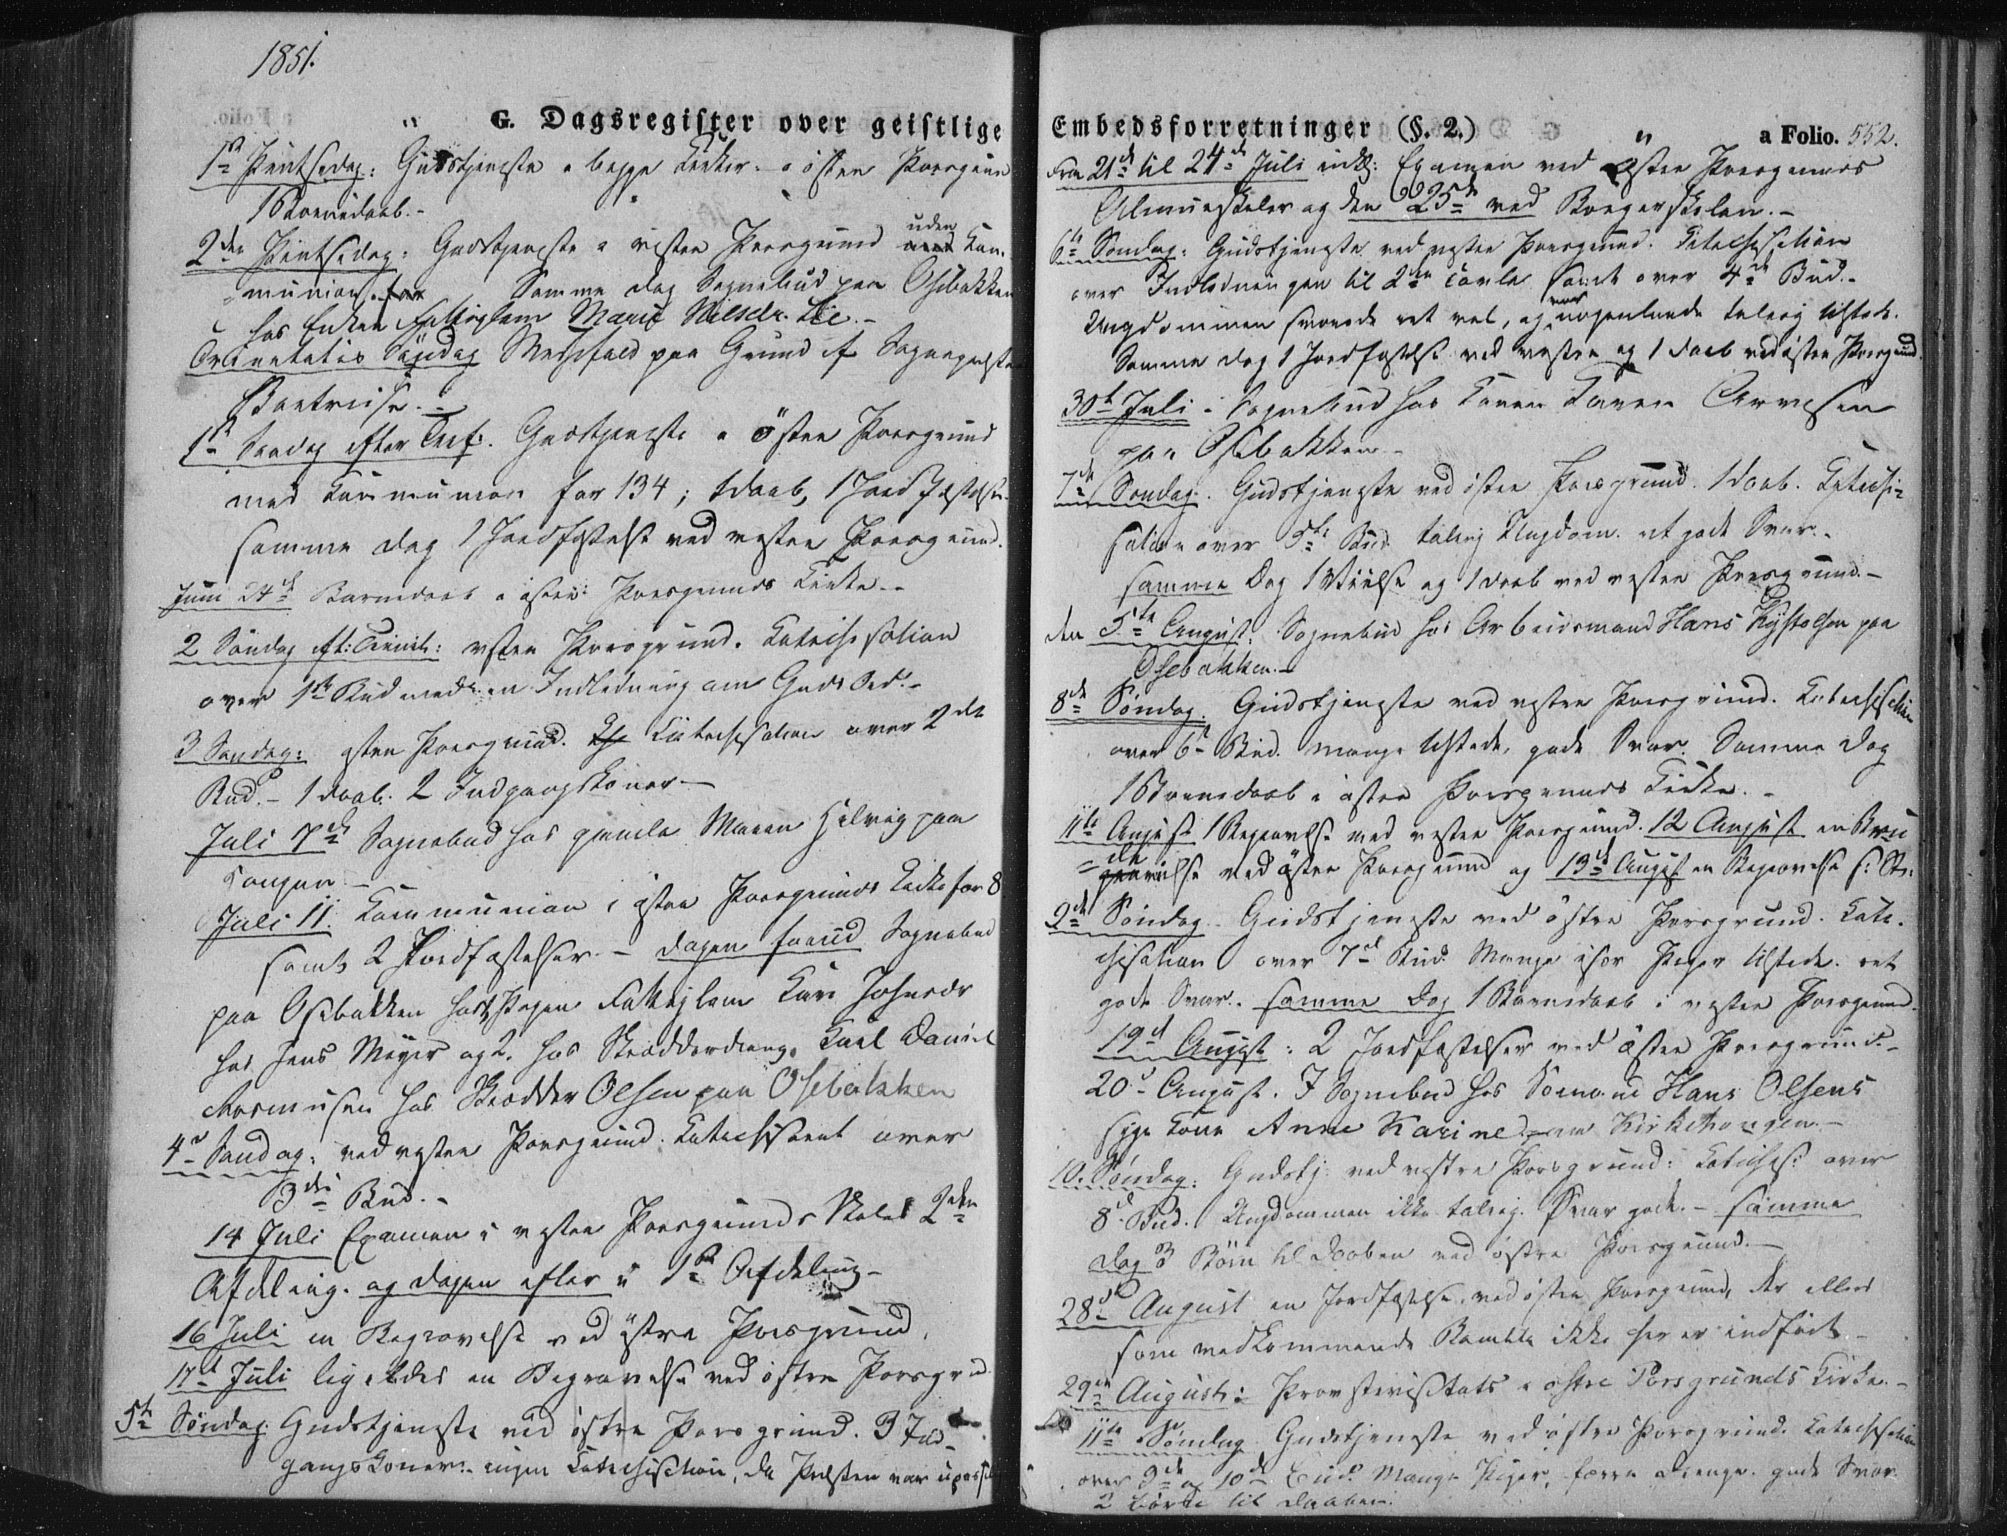 1851.
G. Dagsregister over geistlige
1ste Pintsedag: Gudstjeneste i begge Kirker. i östre Porsgrund
1 Barnedaab.-
2den Pintsedag: Gudstjeneste i vestre Porsgrund uden Com-
munion. Samme dag Sognebud paa Osebakken
hos Enken Fattiglem Marie Nilsdr. Lie.-
Trinitatis Söndag Messefald paa Grund af Sognepræstens
1ste Söndag efter Tref: Gudstjeneste i östre Porsgrund
med Communion for 134; 1 daab, 1 Jordfæstelse.
samme dag 1 Jordfæstelse ved vestre Porsgrund.
Juni 24de Barnedaab i östre Porsgrunds Kirke.-
2 Söndag eft: Trinit: vestre Porsgrund. Katechisation
over 1ste Bud med en Indledning om Guds Ord.-
3 Söndag: østre Porsgrund. Katechisation over 2det
Bud.- 1 daab. 2 Indgangskoner.-
Juli 7de Sognebud hos gamle Maren Helvig paa
Juli 11. Communion i østre Porsgrunds Kirke for 8
samt 2 Jordfæstelser.- dagen forud Sognebud
paa Osebakken hos Pigen Fattiglem Kari Johnsdr
hos Jens Meyer og 2. hos Skrædderdreng. Carl Daniel
Rasmusen hos Skrædder Olsen paa Osebakken
4de Söndag: ved vestre Porsgrund. Katechiseret over
3die Bud.-
14 Juli Examen i vestre Porsgrunds Skoles 2den
Afdeling. og dagen efter i 1ste Afdeling-
16 Juli en Begravelse ved østre Porsgrund.
17de Juli ligeledes en Begravelse ved østre Porsgrd
5te Søndag: Gudstjeneste ved østre Porsgrund. 3 Ind-
gangskoner.- ingen Catechisation, da Præsten var upasse
Embedsforretninger (§. 2.) a Folio. 552.
Fra 21de til 24de Juli inkl: Examen ved Østre Porsgrunds
Almueskoler og den 25de ved Borgerskolen.-
6te Søndag: Gudstjeneste ved vestre Porsgrund. Catechisation
over Indledningen til 2den Tavle samt over 4de Bud.-
Ungdommen svarede ret vel, og var nogenlunde talrig tilstede.
Samme dag 1 Jordfæstelse ved vestre og 1 daab ved østre Porsgrund.
30te Juli i Sognebud hos Konen Karen Arvesen
paa Osebakken.-
7de Søndag. Gudstjeneste ved østre Porsgrund. 1 daab. Katechi-
sation over 5te Bud talrig Ungdom. ret gode Svar.-
samme Dag 1 Vielse og 1 daab ved vestre Porsgrund.-
den 5te August. Sognebud hos Arbeidsmand Hans Kystolsen paa
Osebakken.-
8de Søndag. Gudstjeneste ved vestre Porsgrund. Katechisation
over 6te Bud. mange tilstede, gode Svar. Samme dag
1 Barnedaab i østre Porsgrunds Kirke.-
11te August 1 Begravelse ved vestre Porsgrund. 12 August en Bru-
devielse ved östre Porsgrund og 13de August en Begravelse
9de Søndag. Gudstjeneste ved østre Porsgrund. Kate-
chisation over 7de Bud. Mange især Piger tilstede. ret
gode Svar. samme Dag 1 Barnedaab i vestre Porsgrund.
19de August: 2 Jordfæstelser ved østre Porsgrund.-
20de August. I Sognebud hos Sömand Hans Olsens
syge Kone Anne Karine paa Kirketangen.-
10. Søndag: Gudstj: ved vestre Porsgrund: Catechis: over
8de Bud. Ungdommen ikke talrig. Svar gode.- samme
dag 3 Børn til daaben ved østre Porsgrund.-
28de August en Jordfæstelse ved østre Porsgrund, der ellers
som vedkommende Bamble ikke her er indført.-
29de August: Provstevisitats i østre Porsgrunds Kirke.-
11te Søndag Gudstjeneste ved østre Porsgrund. Catechisation
over 9de og 10de Bud. Mange Piger, færre drenge. gode Svar.
2 børn til daaben.